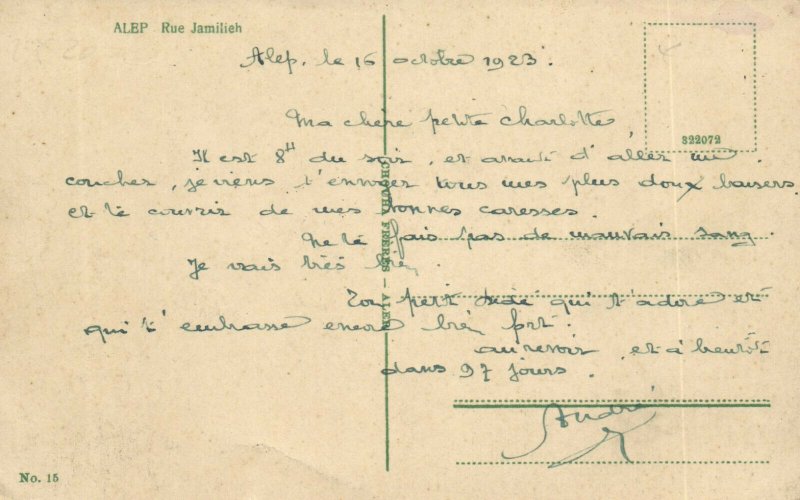 ALEP Rue Jamilieh
Alep, le 16 octobre 1923.
Ma chère petite Charlotte
322072
Il est 8H du soir, et avant d'aller me
coucher, je viens t'envoyer tous mes plus doux baisers
et te couvrir de mes bonnes caresses.
Ne te fais pas de mauvais sang.
Je vais très bien.
Ton petit qui t'adore et
qui t'embrasse encore bien fort.
au revoir, et à bientôt
dans 97 jours.
André
CHOUHA FRÈRES - ALEP
No. 15